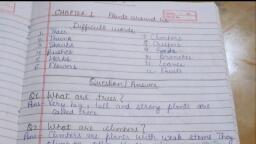 CHAPTER 1 Plants around us
Difficult words
1. Trees
2. Trunk
3. Shrubs
4. Bushes
5. Herbs
6. Flowers
7. Climbers
8. Creepers
9. Seeds
10. Branches
11. Leaves
12. Fruits
Question / Answer
Q1. What are trees?
Ans: Very big, tall and strong plants are
called trees
Q2. What are climbers?
Ans: Climbers are plants with weak stems They